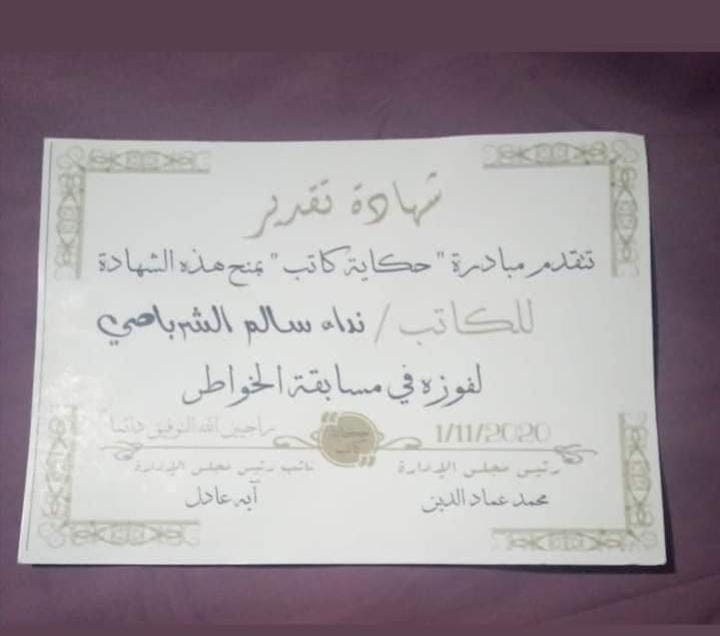 شهادة تقدير
تتقدم مبادرة "حكاية كاتب" بمنح هذه الشهادة
للكاتب / نداء سالم الشرباصي
لفوزه في مسابقة الخواطر
1/11/2020 راجيين الله التوفيق دائما
حكاية كاتب
رئيس مجلس الإدارة نائب رئيس مجلس الإدارة
محمد عماد الدين آيه عادل